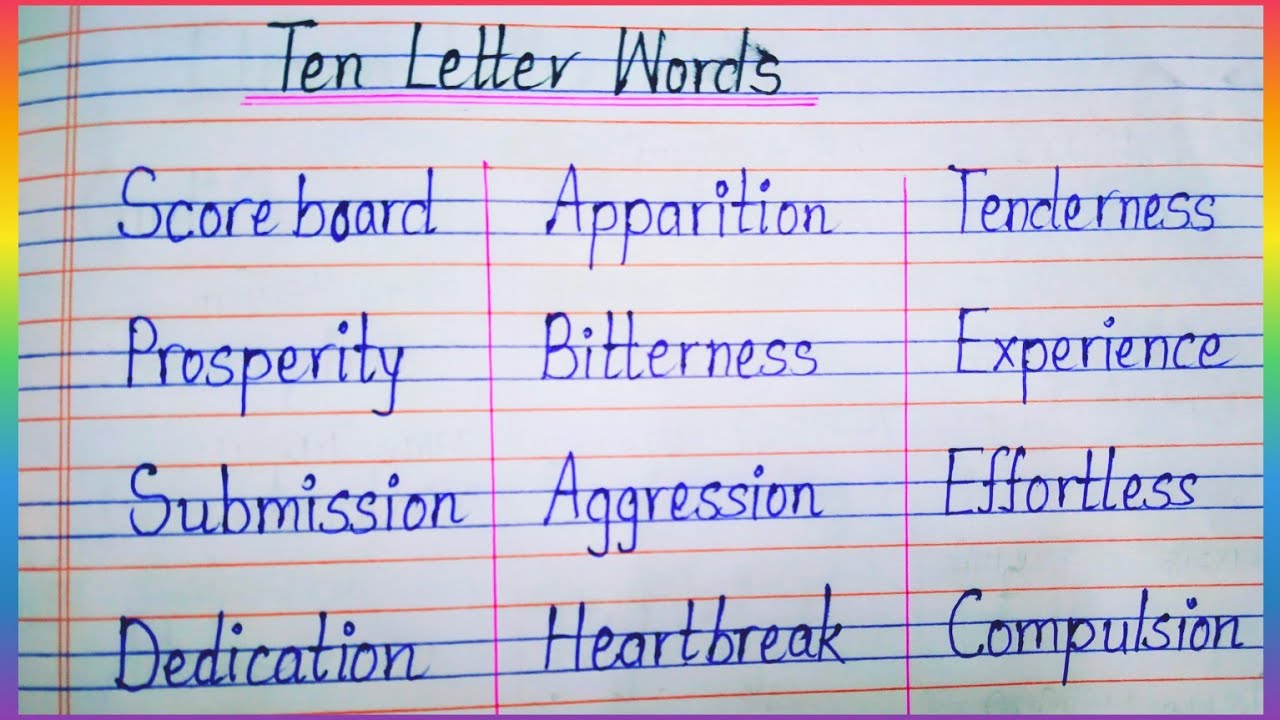 Ten Letter Words
Scoreboard Apparition Tenderness
Prosperity Bitterness Experience
Submission Aggression Effortless
Dedication Heartbreak Compulsion